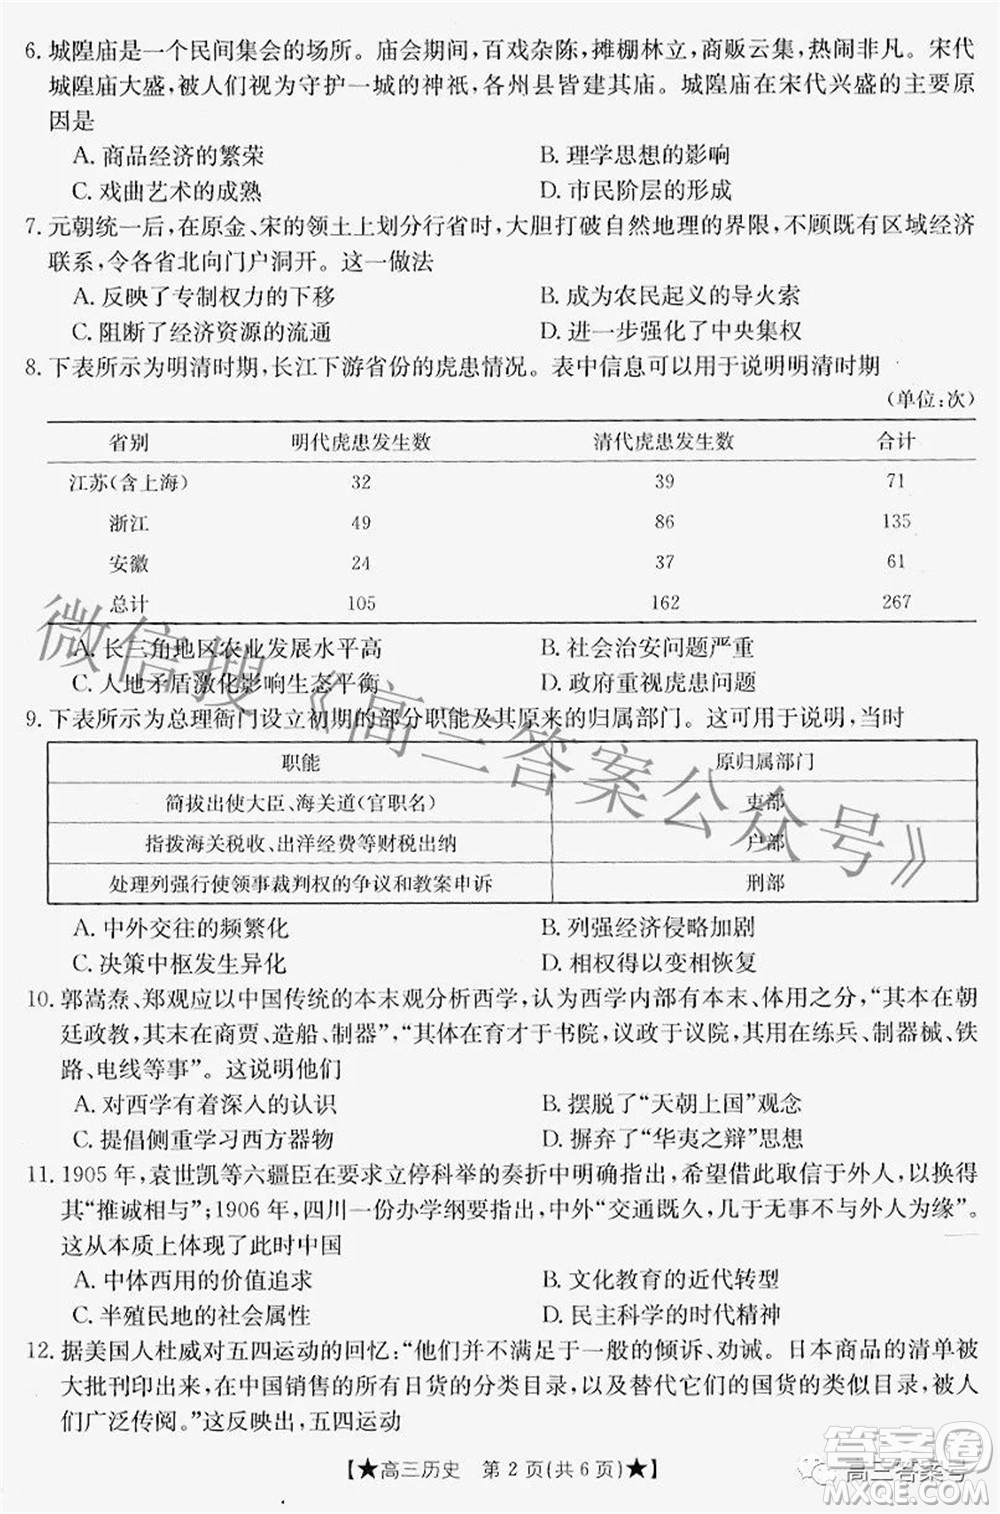 6. 城隍庙是一个民间集会的场所。庙会期间，百戏杂陈，摊棚林立，商贩云集，热闹非凡。宋代
城隍庙大盛，被人们视为守护一城的神祇，各州县皆建其庙。城隍庙在宋代兴盛的主要原
因是
A. 商品经济的繁荣 B. 理学思想的影响
C. 戏曲艺术的成熟 D. 市民阶层的形成
7. 元朝统一后，在原金、宋的领土上划分行省时，大胆打破自然地理的界限，不以原有区域经济
联系，令各省北向门户洞开。这一做法
A. 反映了专制权力的下移 B. 成为农民起义的导火索
C. 阻断了经济资源的流通 D. 进一步强化了中央集权
8. 下表所示为明清时期，长江下游省份的虎患情况。表中信息可以用于说明明清时期
（单位：次）
省别 明代虎患发生数 清代虎患发生数 合计
江苏（含上海） 32 39 71
浙江 49 86 135
安徽 24 37 61
总计 105 162 267
A. 长三角地区农业发展水平高 B. 社会治安问题严重
C. 人地矛盾激化影响生态平衡 D. 政府重视虎患问题
9. 下表所示为总理衙门设立初期的部分职能及其原来的归属部门。这可用于说明，当时
职能 原归属部门
简拔出使大臣、海关道（官职名） 吏部
指拨海关税收、出洋经费等财税出纳 户部
处理列强行使领事裁判权的争议和教案申诉 刑部
A. 中外交往的频繁化 B. 列强经济侵略加剧
C. 决策中枢发生异化 D. 相权得以变相恢复
10. 郭嵩焘、郑观应以中国传统的本末观分析西学，认为西学内部有本末、体用之分，“其本在朝
廷政教，其末在商贾、造船、制器”，“其体在育才于书院，议政于议院，其用在练兵、制器械、铁
路、电线等事”。这说明他们
A. 对西学有着深入的认识 B. 摆脱了“天朝上国”观念
C. 提倡侧重学习西方器物 D. 摒弃了“华夷之辩”思想
11. 1905 年，袁世凯等六疆臣在要求立停科举的奏折中明确指出，希望借此取信于外人，以换得
其“推诚相与”；1906 年，四川一份办学纲要指出，中外“交通既久，几于无事不与外人为缘”。
这从本质上体现了此时中国
A. 中体西用的价值追求 B. 文化教育的近代转型
C. 半殖民地的社会属性 D. 民主科学的时代精神
12. 据美国人杜威对五四运动的回忆：“他们并不满足于一般的倾诉、劝诫。日本商品的清单被
大批刊印出来，在中国销售的所有日货的分类目录，以及替代它们的国货的类似目录，被人
们广泛传阅。”这反映出，五四运动
【★高三历史 第 2 页（共 6 页）★】
微信搜《高三答案公众号》
高三答案号
答案圈
MXQE.COM